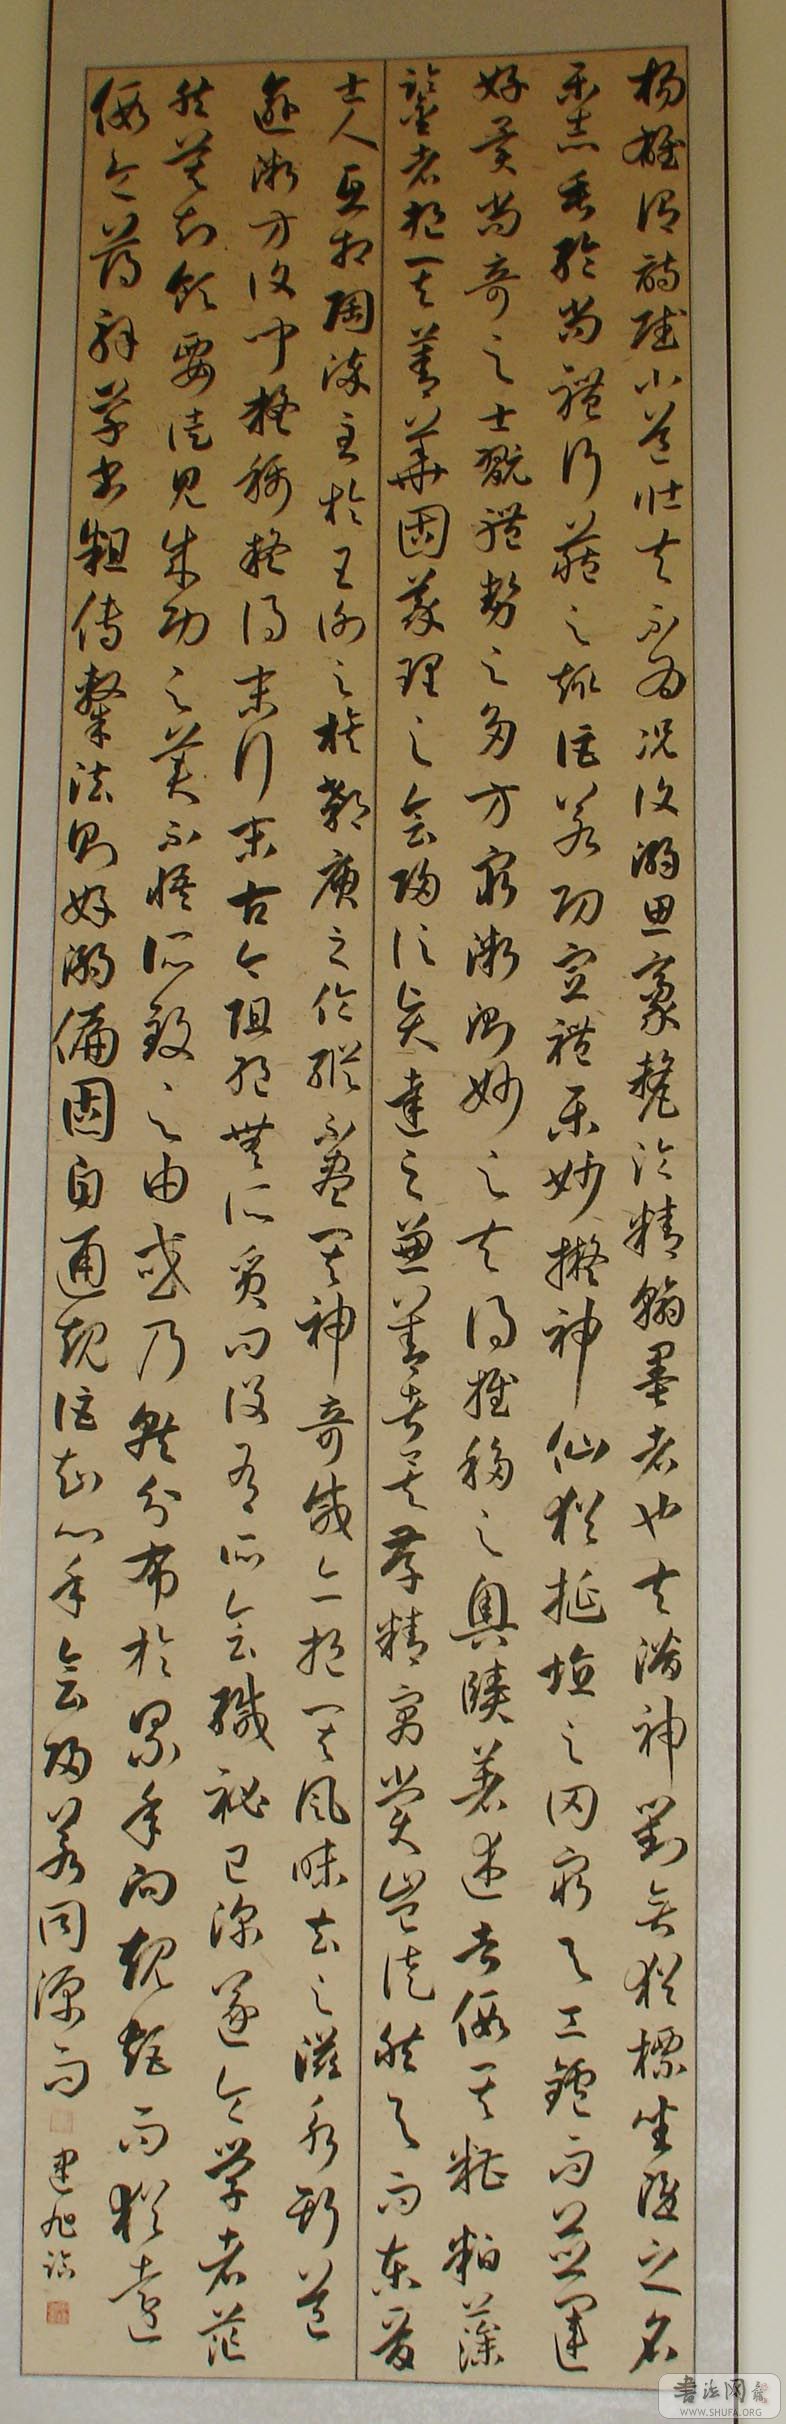 楊雄謂詩賦小道壯夫不為況復溺思豪氂淪精翰墨者也夫潛神對弈猶標坐隱之名
樂志垂綸尚體行藏之趣詎若功宣禮樂妙擬神仙猶埏埴之罔窮與工鑪而並運
好異尚奇之士翫體勢之多方窮微測妙之夫得推移之奧賾著述者假其糟粕藻
鑒者挹其菁華固義理之會歸信賢達之兼善者矣存精寓賞豈徒然與而東晉
士人互相陶淬至於王謝之族郗庾之倫縱不盡其神奇咸亦挹其風味去之滋永斯道
愈微方復聞疑稱疑得末行末古今阻絕無所質問設有所會緘秘已深遂令學者茫
然莫知領要徒見成功之美不悟所致之由或乃就分布於累年向規矩而猶遠
假令薄解草書粗傳隸法則好溺偏固自通規詎知心手會歸若同源而
建旭
書法网
WWW.SHUFA.ORG